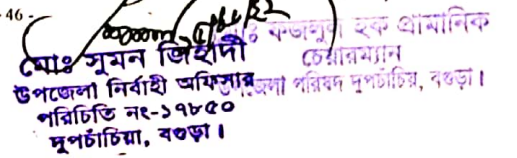 - 46 -
মোঃ সুমন জিহাদী
উপজেলা নির্বাহী অফিসার
পরিচিতি নং-১৭৮৫০
দুপচাঁচিয়া, বগুড়া।
ফজলুল হক প্রামানিক
চেয়ারম্যান
উপজেলা পরিষদ দুপচাঁচিয়া, বগুড়া।